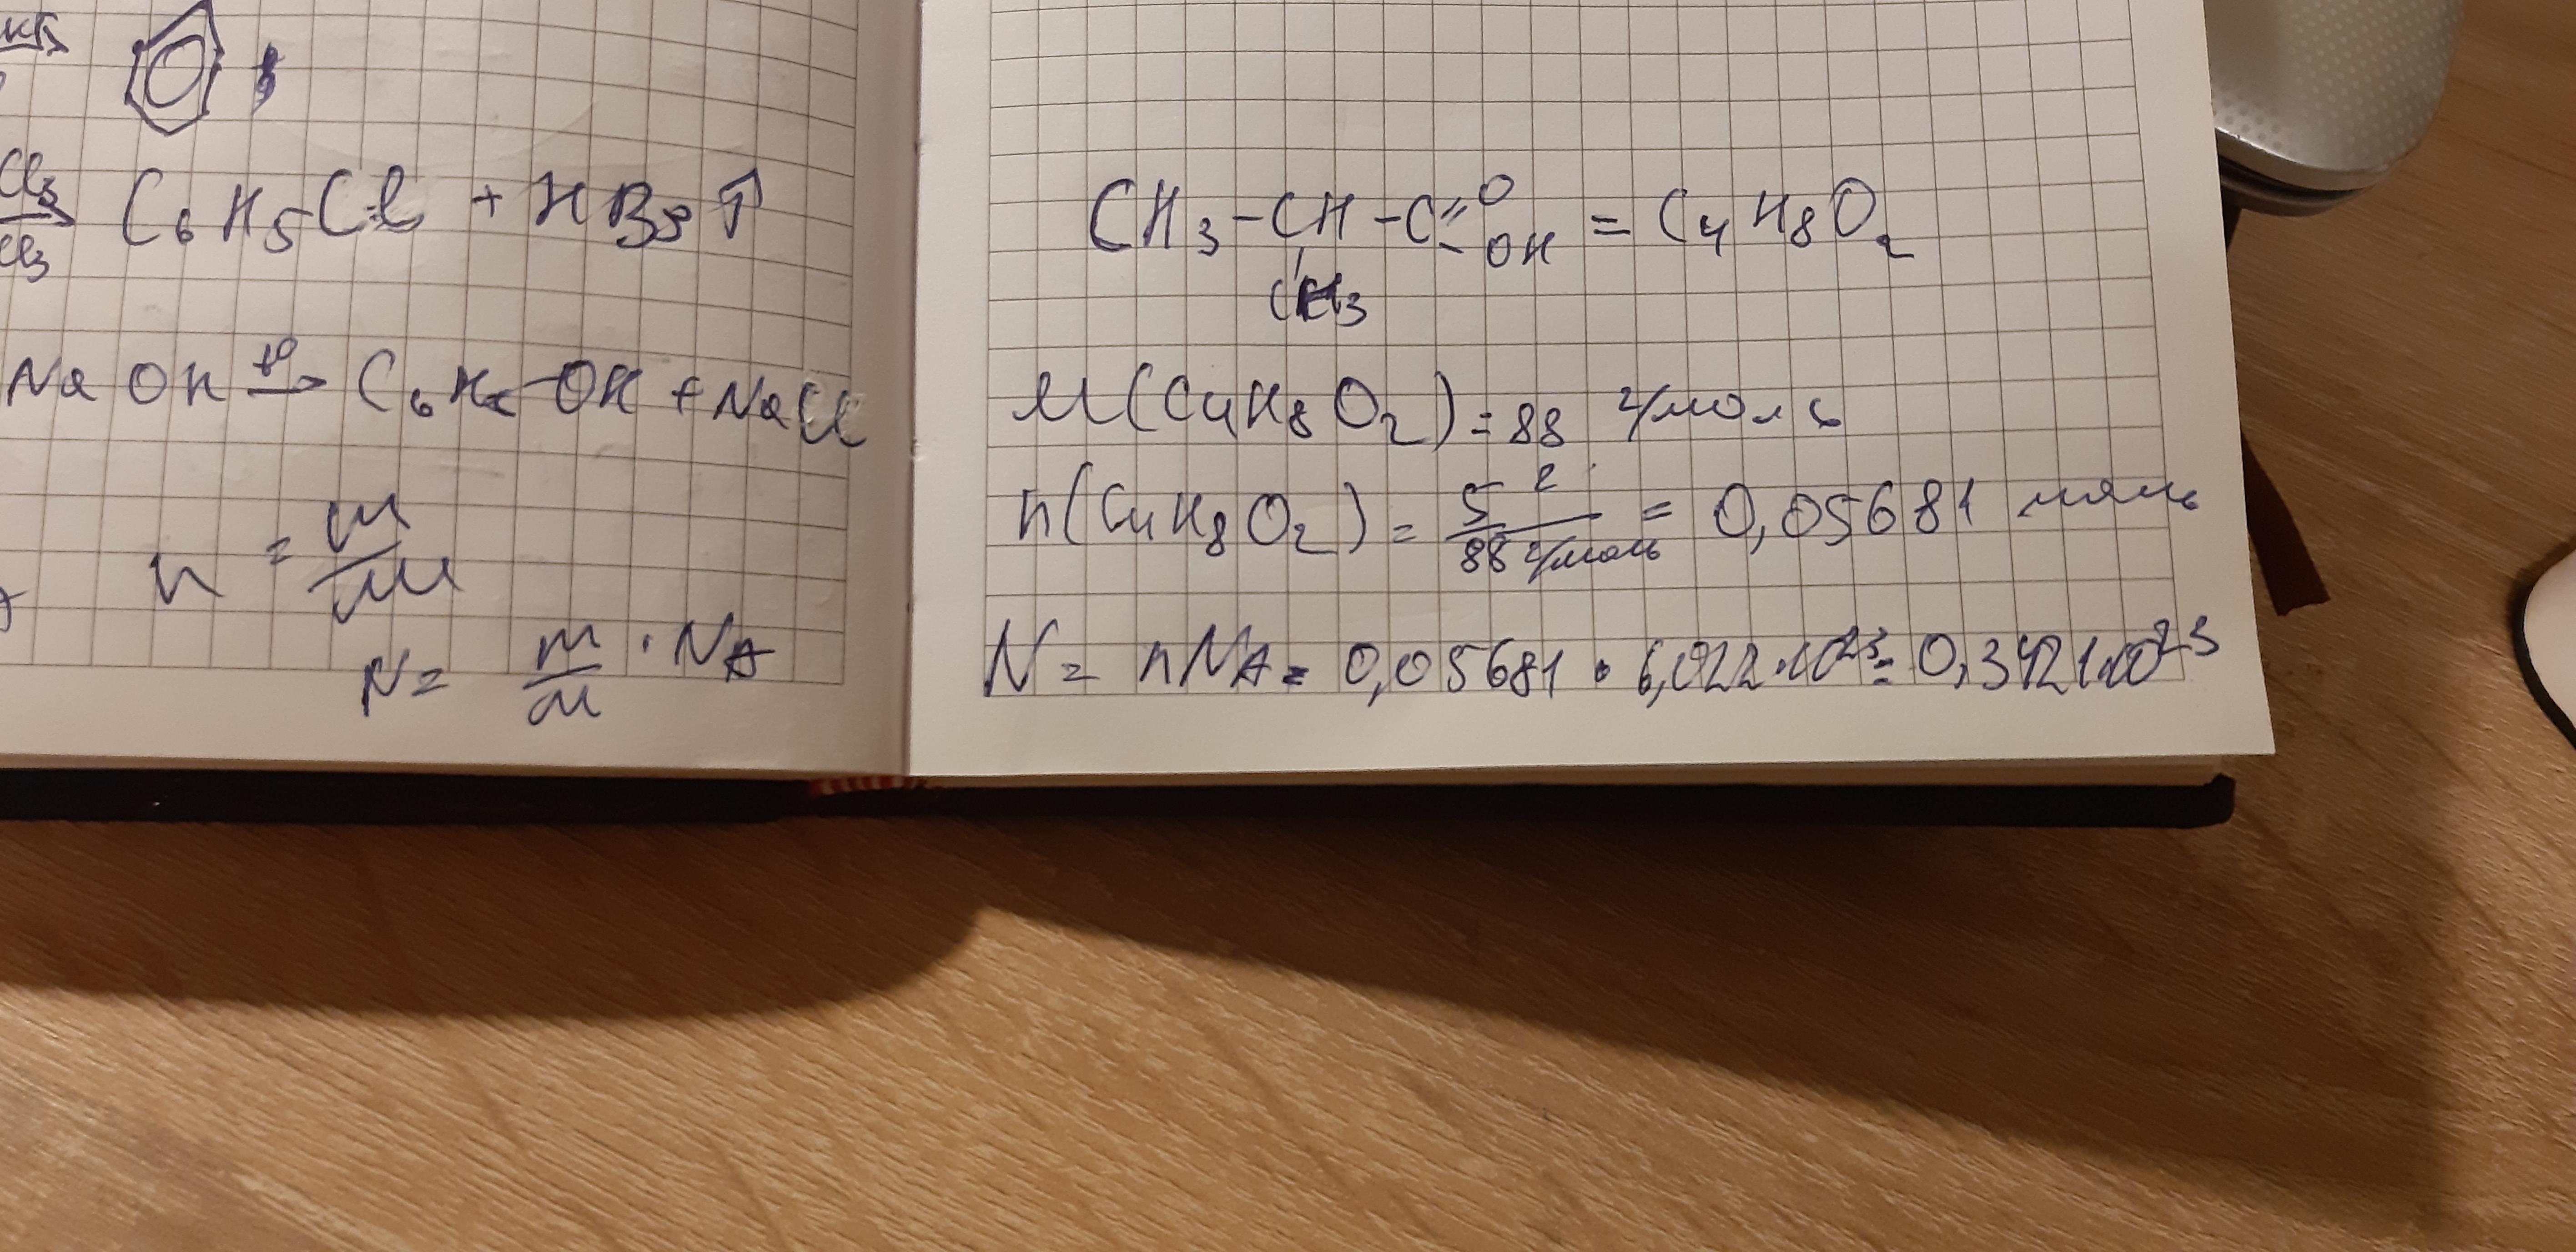 Cl₃
Cl₃
C₆H₅Cl + HBr↑
NaOH t° → C₆H₅-OH + NaCl
n = m/M
N = m/M · N_A
CH₃-CH-C=O
OH = C₄H₈O₂
CH₃
M(C₄H₈O₂) = 88 г/моль
n(C₄H₈O₂) = 5 г / 88 г/моль = 0,05681 моль
N = nN_A = 0,05681 · 6,022·10²³ = 0,3421·10²³